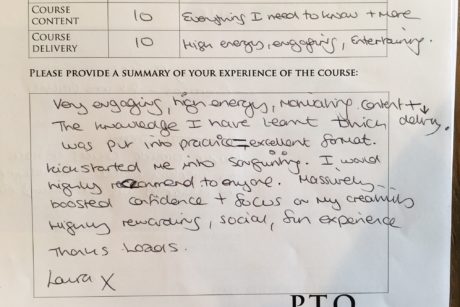 COURSE CONTENT 10 Everything I need to know + more
COURSE DELIVERY 10 High energy, engaging, Entertaining.
PLEASE PROVIDE A SUMMARY OF YOUR EXPERIENCE OF THE COURSE:
Very engaging, high energy, Motivating content + delivery.
The knowledge I have learnt which
was put into practice = excellent format.
Kickstarted me into songwriting. I would
highly recommend to anyone. Massively
boosted confidence + focus on my creativity
Highly rewarding, social, fun experience
Thanks Loads.
Laura X
P.T.O